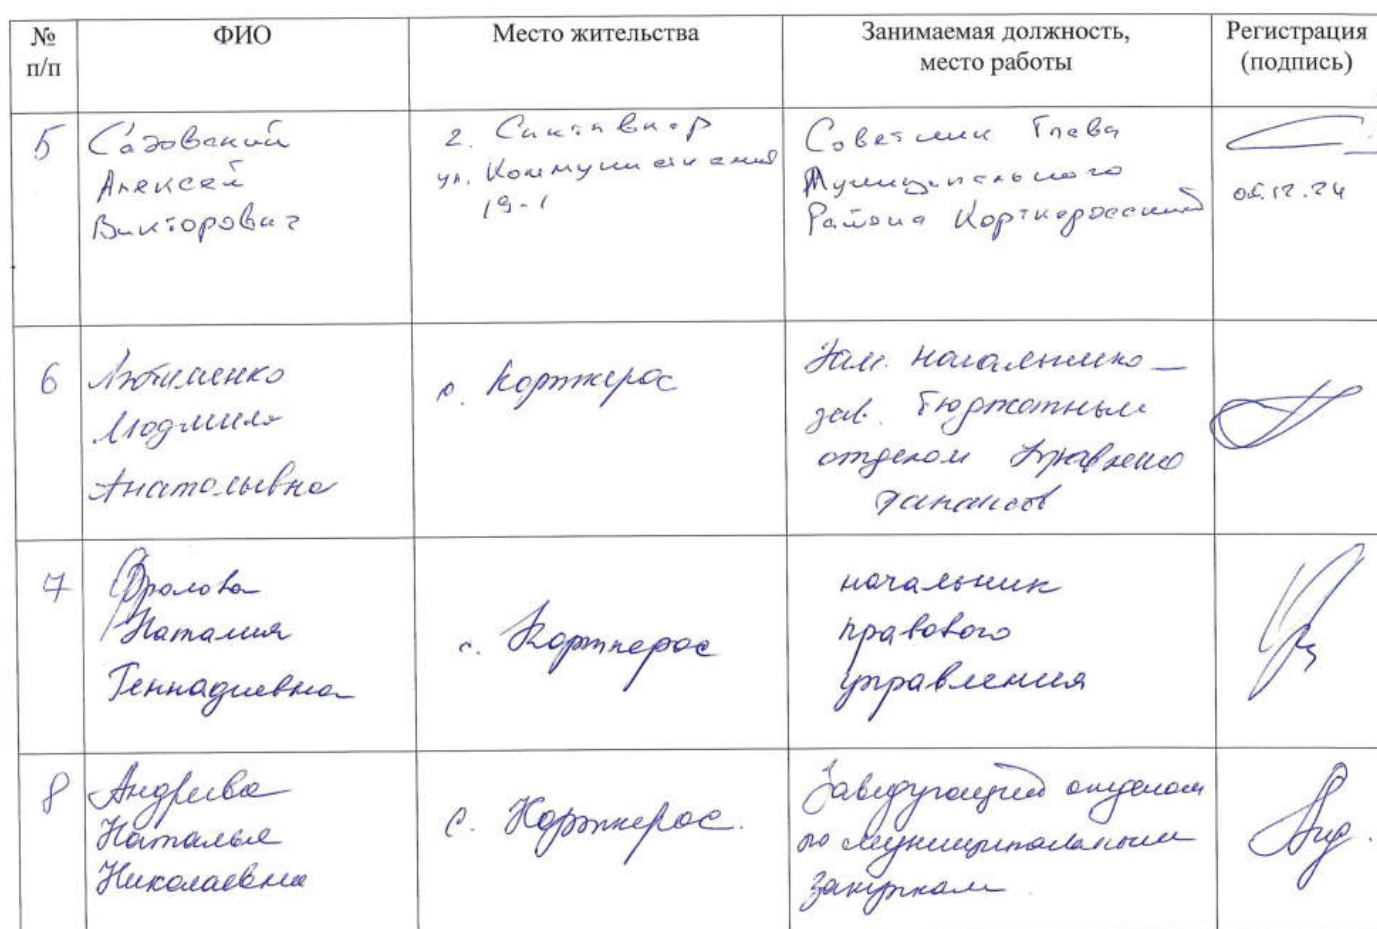 № п/п
ФИО
Место жительства
Занимаемая должность, место работы
Регистрация (подпись)
5
Садовский
Алексей
Викторович
г. Сыктывкар
ул. Коммунистическая
19-1
Советник Глава
Муниципального
Района Корткеросский
05.12.24
6
Людмила
Анатольевна
с. Корткерос
Зам. начальника –
зав. бюджетным
отделом Управления
финансов
7
Фролова
Наталия
Геннадиевна
с. Корткерос
начальник
правового
управления
8
Андреева
Наталья
Николаевна
с. Корткерос.
Заведующий отделом
по муниципальным
закупкам